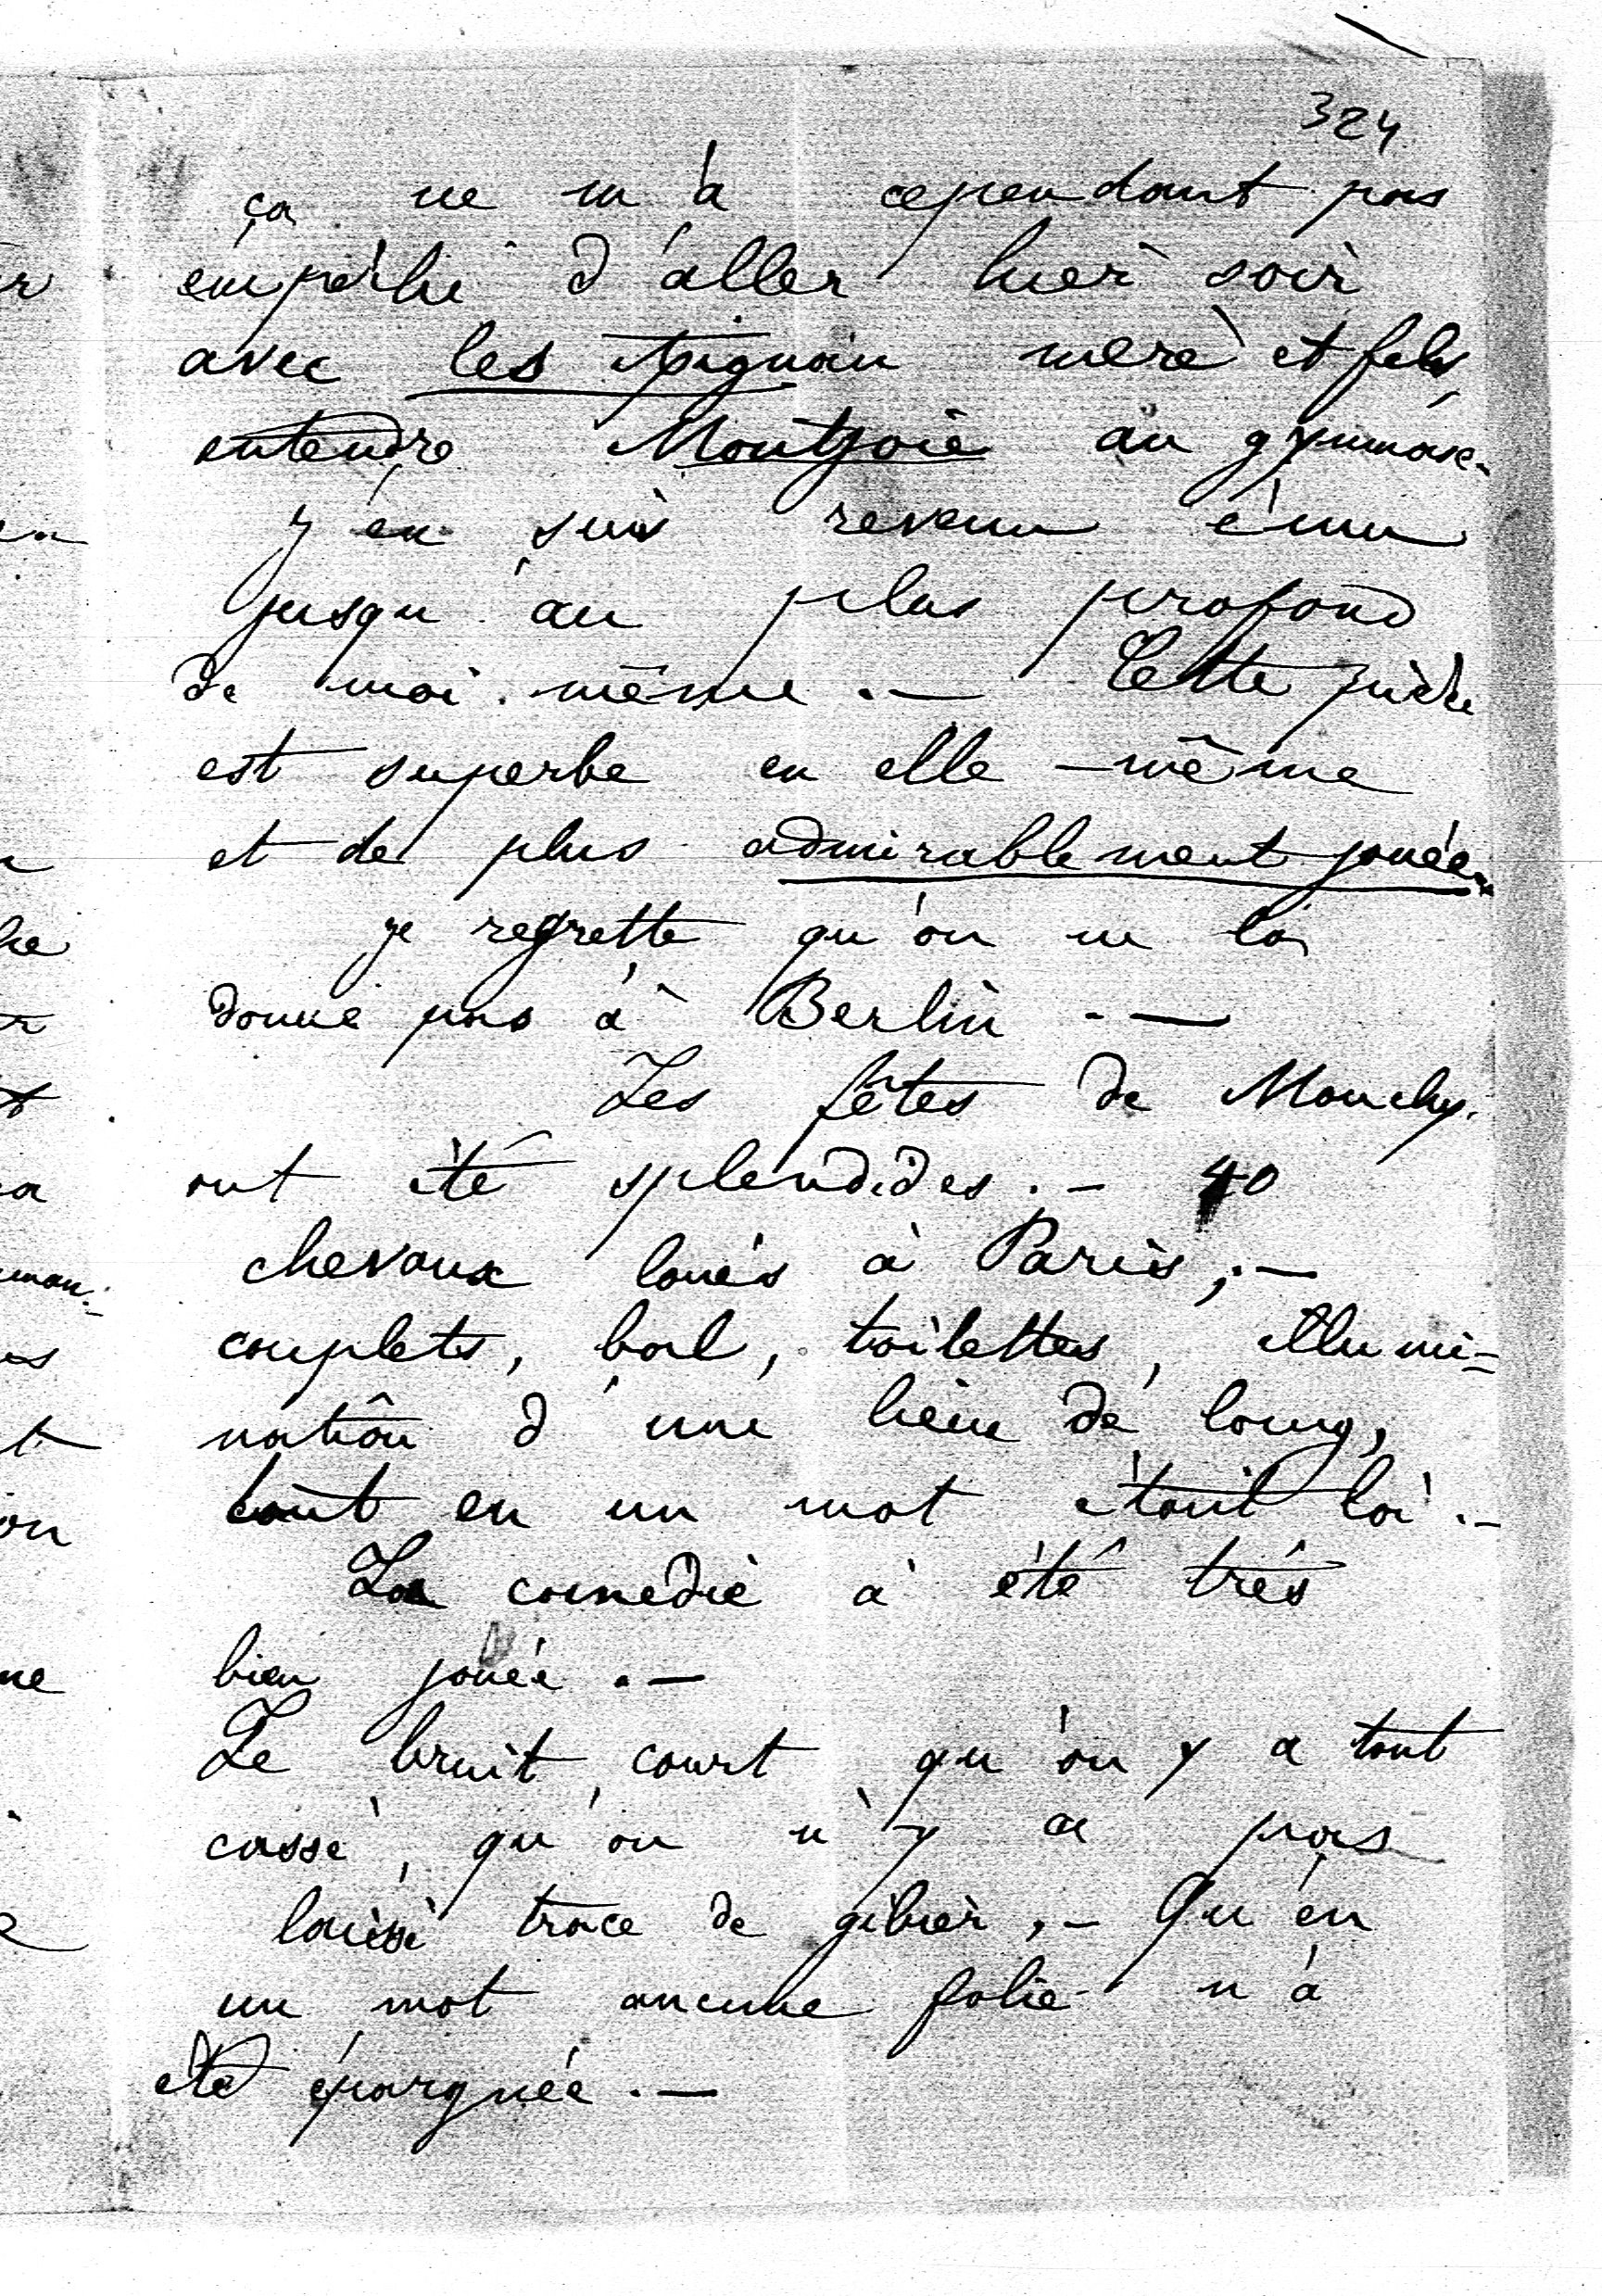 324
ça ne m'a cependant pas
empêché d'aller hier soir
avec les mère et fils,
entendre Montjoie au gymnase.
J'en suis revenu ému
jusqu'au plus profond
de moi-même. — Cette pièce
est superbe en elle-même
et de plus admirablement jouée.
je regrette qu'on ne la
donne pas à Berlin. —
Les fêtes de Mouchy
ont été splendides. — 40
chevaux loués à Paris; —
couplets, bal, toilettes, illumi=
nation d'une lieue de long,
tout en un mot était là. —
La comédie a été très
bien jouée. —
Le bruit court qu'on y a tout
cassé, qu'on n'y a pas
laissé trace de gibier, — Qu'en
un mot aucune folie n'a
été épargnée. —